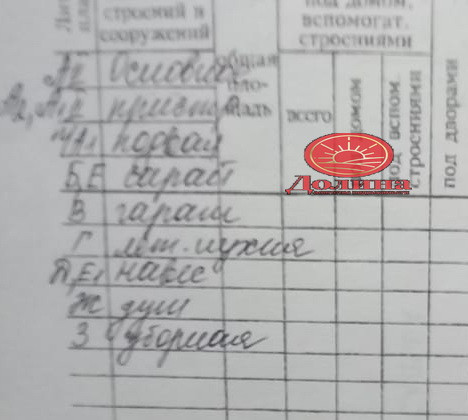 строений и
сооружений
общая
пло-
щадь
под домом,
вспомогат.
строениями
всего
домом
под вспом.
строениями
под дворами
Долина
А2 Основн
А2, А12 пристр
подвал
Б, Е сарай
В гараж
Г лет. кухня
Д, Е1 навес
Ж душ
З уборная